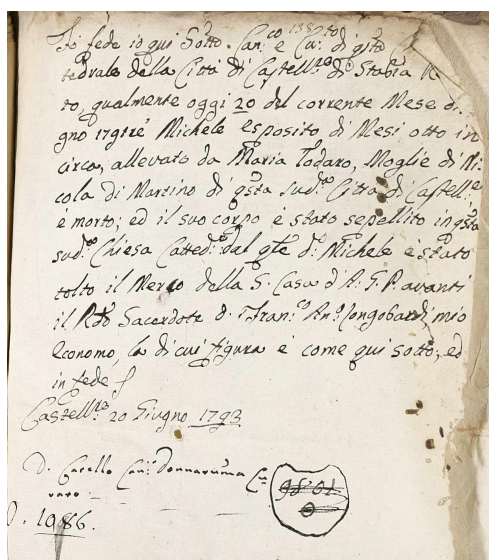 Io fede io qui Sotto. Can.co e Cu: di q̃sta
tedrale della Città di Castell:re di Stabia
to, qualmente oggi 20 del corrente Mese di
gno 1793 Michele esposito di Mesi otto in
circa, allevato da Maria Todaro, Moglie di Ni
cola di Martino di q̃sta sud:a Città di Castell:e
è morto; ed il suo corpo è stato sepellito in q̃sta
sud:a Chiesa Catted:e dal q̃le d:o Michele è stato
tolto il Merco della S. Casa d'A. G. P. avanti
il Rdo Sacerdote D. Fran:co An:o Longobardi mio
Economo, la di cui figura è come qui sotto; ed
in fede
Castell:re 20 Giugno 1793
D. Catello Can: Donnaruma Cu
rato
1986.